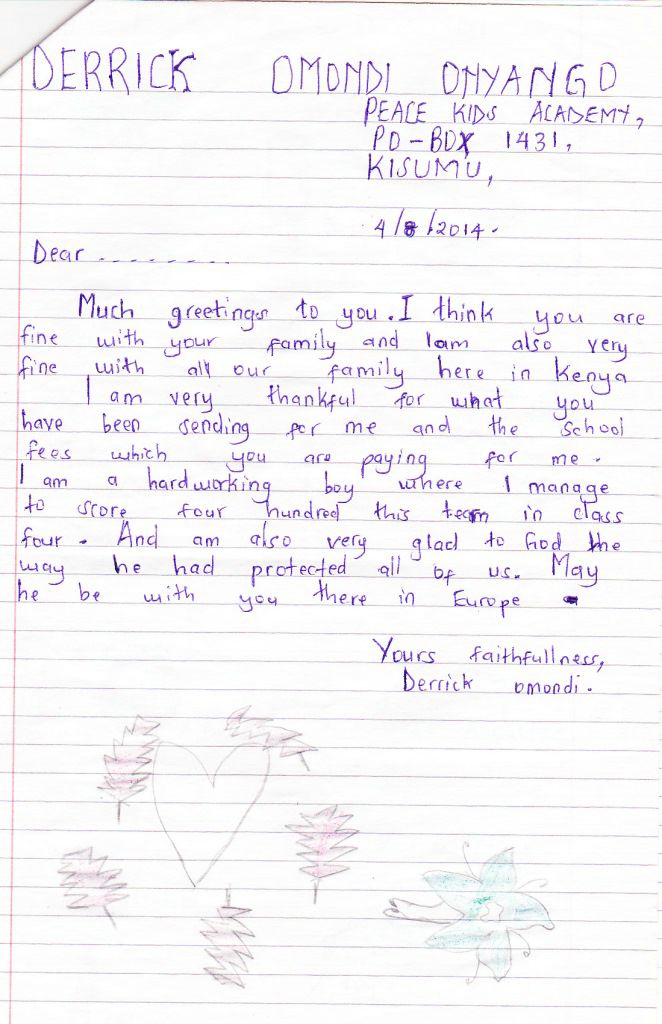 DERRICK OMONDI ONYANGO
PEACE KIDS ACADEMY,
PO-BOX 1431,
KISUMU,
4/8/2014.
Dear ........
Much greetings to you. I think you are
fine with your family and Iam also very
fine with all our family here in Kenya
I am very thankful for what you
have been sending for me and the school
fees which you are paying for me.
I am a hardworking boy where I manage
to score four hundred this team in class
four. And am also very glad to God the
way he had protected all of us. May
he be with you there in Europe
Yours faithfullness,
Derrick omondi.